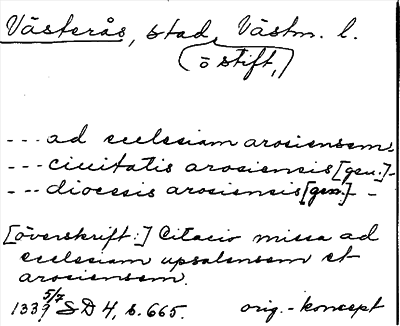 Västerås, stad, Västm. l.
(o stift,)
--- ad ecclesiam arosiensem.
--- ciuitatis arosiensis [gen.] -
--- diocesis arosiensis [gen.] - -
[överskrift:] Citacio missa ad
ecclesiam upsalensem et
arosiensem.
1339 5/7 SD 4, s. 665. orig.-koncept